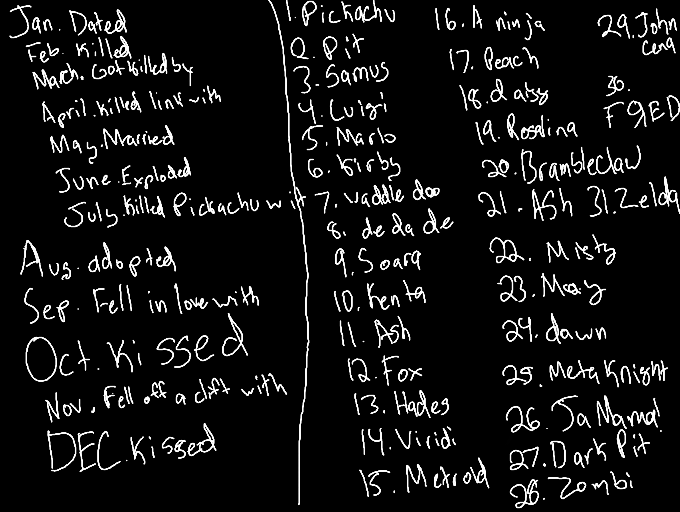 Jan. Dated
Feb. Killed
March. Got killed by
April. killed link with
May. Married
June. Exploded
July. killed Pickachu with
Aug. adopted
Sep. Fell in love with
Oct. Kissed
Nov. Fell off a clift with
DEC. Kissed
1. Pickachu
2. Pit
3. Samus
4. Luigi
5. Mario
6. Kirby
7. Waddle doo
8. de da de
9. Soara
10. Kenta
11. Ash
12. Fox
13. Hades
14. Viridi
15. Metroid
16. A ninja
17. Peach
18. daisy
19. Rosalina
20. Brambleclaw
21. Ash
22. Misty
23. May
24. dawn
25. Meta Knight
26. Ja Mama!
27. Dark Pit
28. Zombi
29. John Cena
30. F9ED
31. Zelda